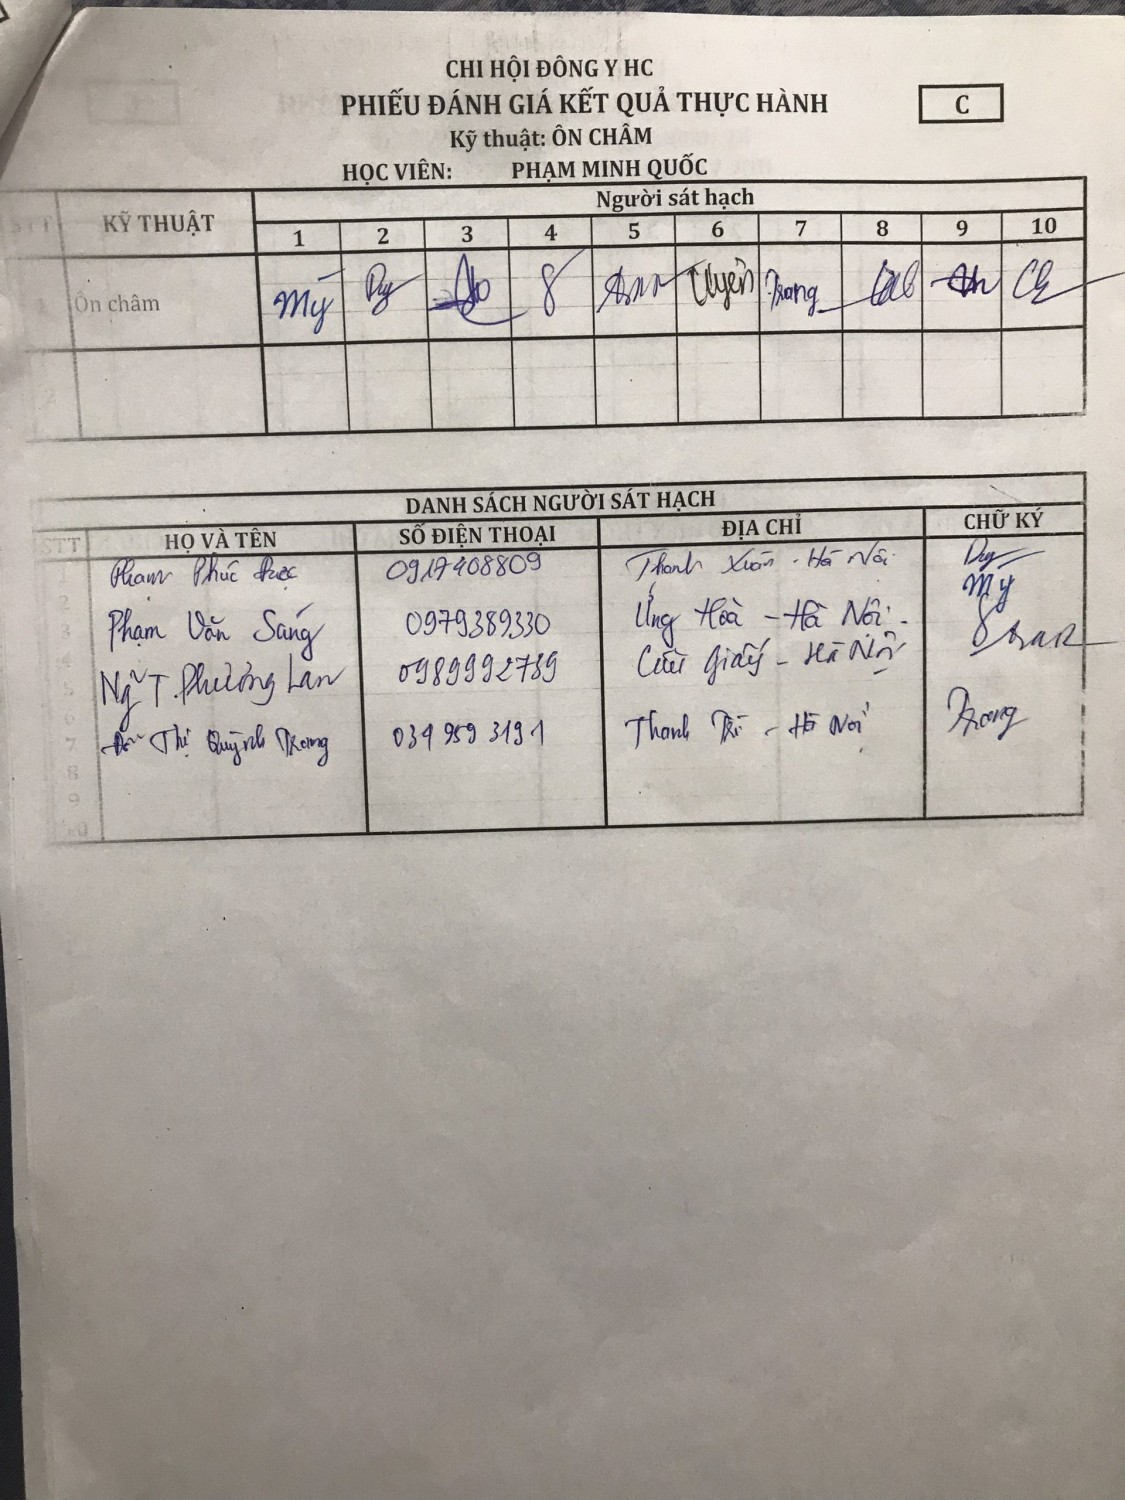 CHI HỘI ĐÔNG Y HC
PHIẾU ĐÁNH GIÁ KẾT QUẢ THỰC HÀNH
C
Kỹ thuật: ÔN CHÂM
HỌC VIÊN: PHẠM MINH QUỐC
STT KỸ THUẬT Người sát hạch
1 2 3 4 5 6 7 8 9 10
1 Ôn châm Mý Duy 8 Uyên Trang
2
DANH SÁCH NGƯỜI SÁT HẠCH
STT HỌ VÀ TÊN SỐ ĐIỆN THOẠI ĐỊA CHỈ CHỮ KÝ
1 Phạm Phúc 0917408809 Thanh Xuân - Hà Nội Duy
2 My
3 Phạm Văn Sáng 0979389330 Ứng Hoà - Hà Nội. 8
4 Ng T. Phương Lan 0989992739 Cầu Giấy - Hà Nội
5
6
7 Thị Quỳnh Trang 034 959 3191 Thanh Trì - Hà Nội Trang
8
9
10